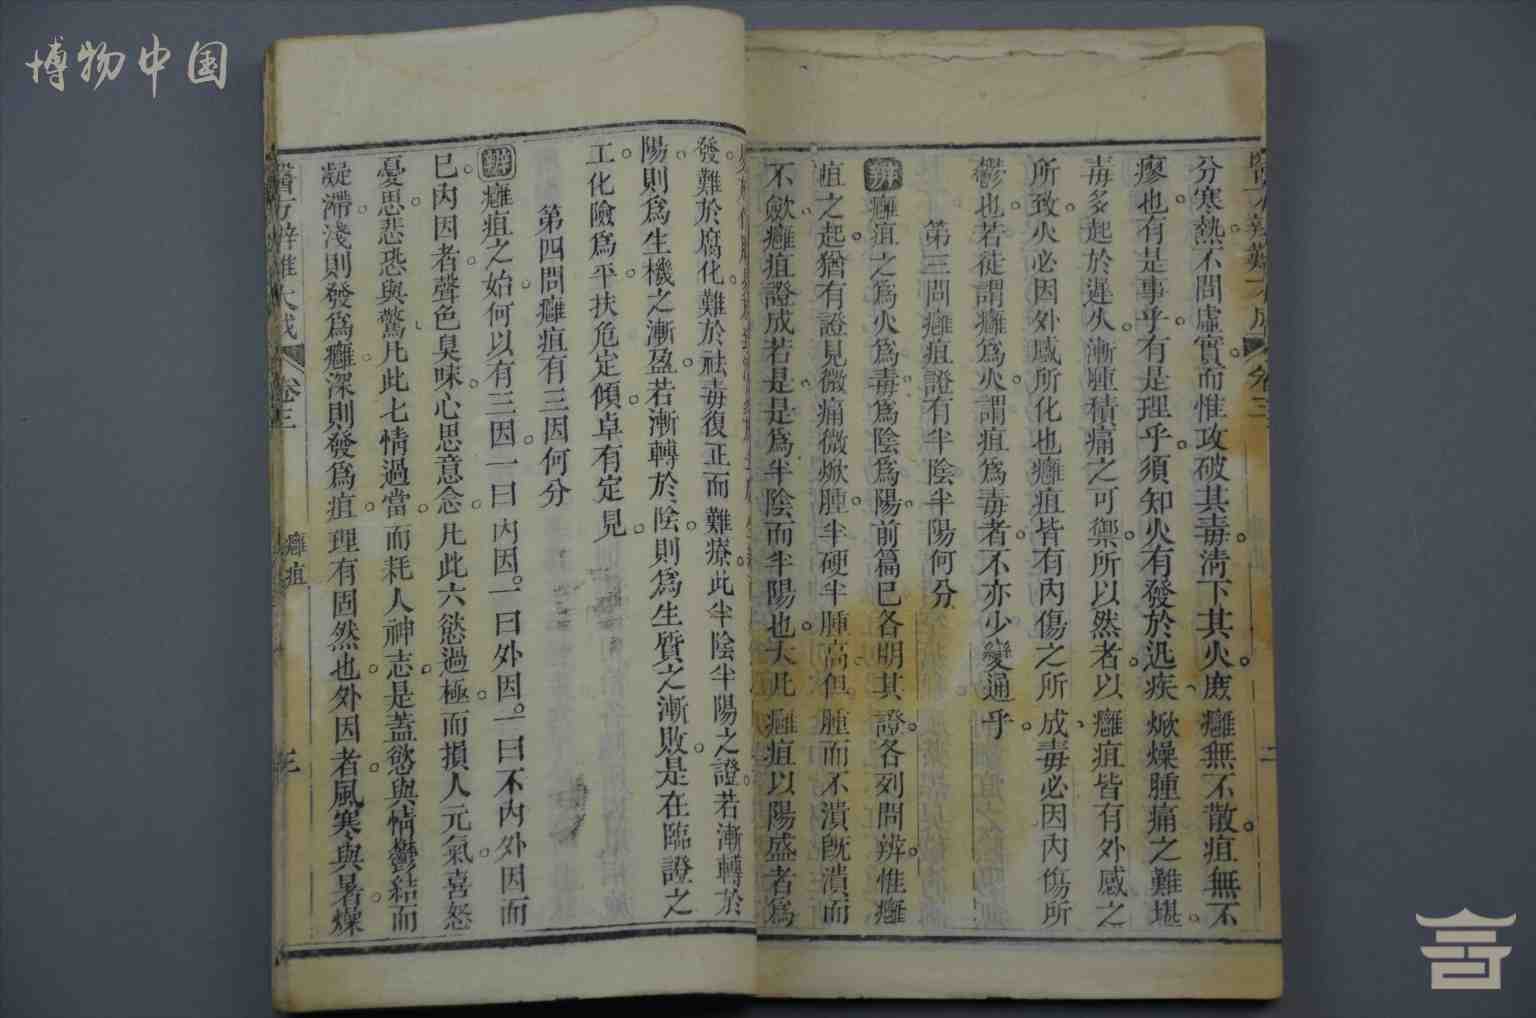 博物中国
分寒熱不問虛實而惟攻破其毒淸下其火庶癰無不散疽無不
瘳也有是事乎有是理乎須知火有發於迅疾焮燥腫痛之難堪
毒多起於遲久漸腫積痛之可禦所以然者以癰疽皆有外感之
所致火必因外感所化也癰疽皆有內傷之所成毒必因內傷所
鬱也若徒謂癰爲火謂疽爲毒者不亦少變通乎
第三問癰疽證有半陰半陽何分
辨癰疽之爲火爲毒爲陰爲陽前篇已各明其證各列問辨惟癰
疽之起猶有證見微痛微焮腫半硬半腫高但腫而不潰旣潰而
不斂癰疽證成若是是爲半陰而半陽也大此癰疽以陽盛者爲
發難於腐化難於祛毒復正而難療此半陰半陽之證若漸轉於
陽則爲生機之漸盈若漸轉於陰則爲生質之漸敗是在臨證之
工化險爲平扶危定傾卓有定見
第四問癰疽有三因何分
辨癰疽之始何以有三因一曰內因一曰外因一曰不內外因而
已內因者聲色臭味心思意念凡此六慾過極而損人元氣喜怒
憂思悲恐與驚凡此七情過當而耗人神志是蓋慾與情鬱結而
凝滯淺則發爲癰深則發爲疽理有固然也外因者風寒與暑燥
醫方辨難大成 卷三 癰疽 三